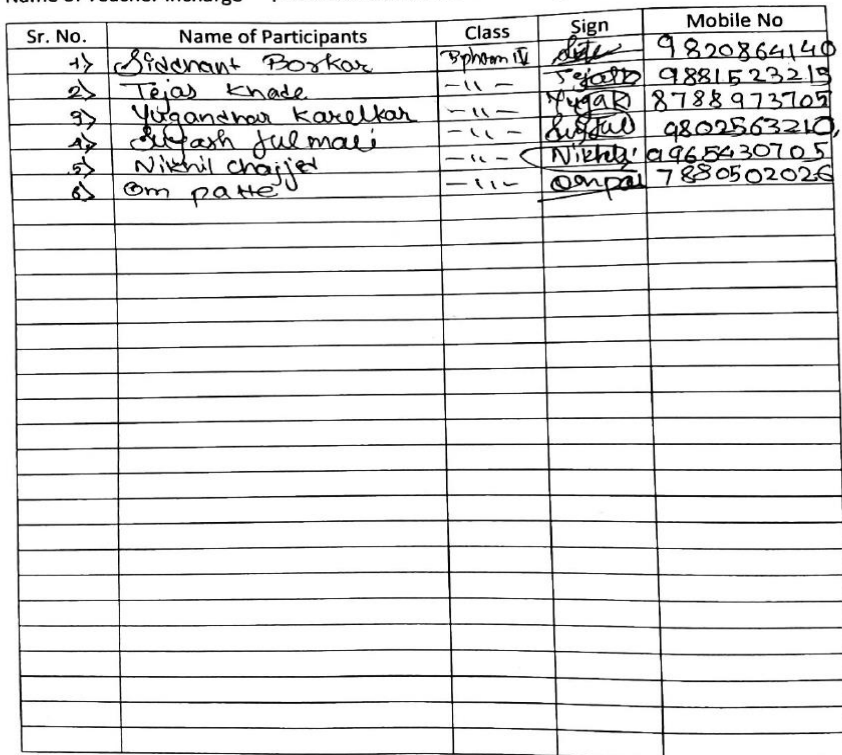 Name of Teacher Incharge
Sr. No. Name of Participants Class Sign Mobile No
1) Siddhant Borkar Bpharm IV 9820864140
2) Tejas Khade -11- 9881523219
3) Yugandhar Karelkar -11- YugaK 8788973705
4) Suyash Julmali -11- SuyJul 9802563210,
5) Nikhil Chajjed -11- Nikhil 9965430705
6) Om patte -11- Ompat 7880502026